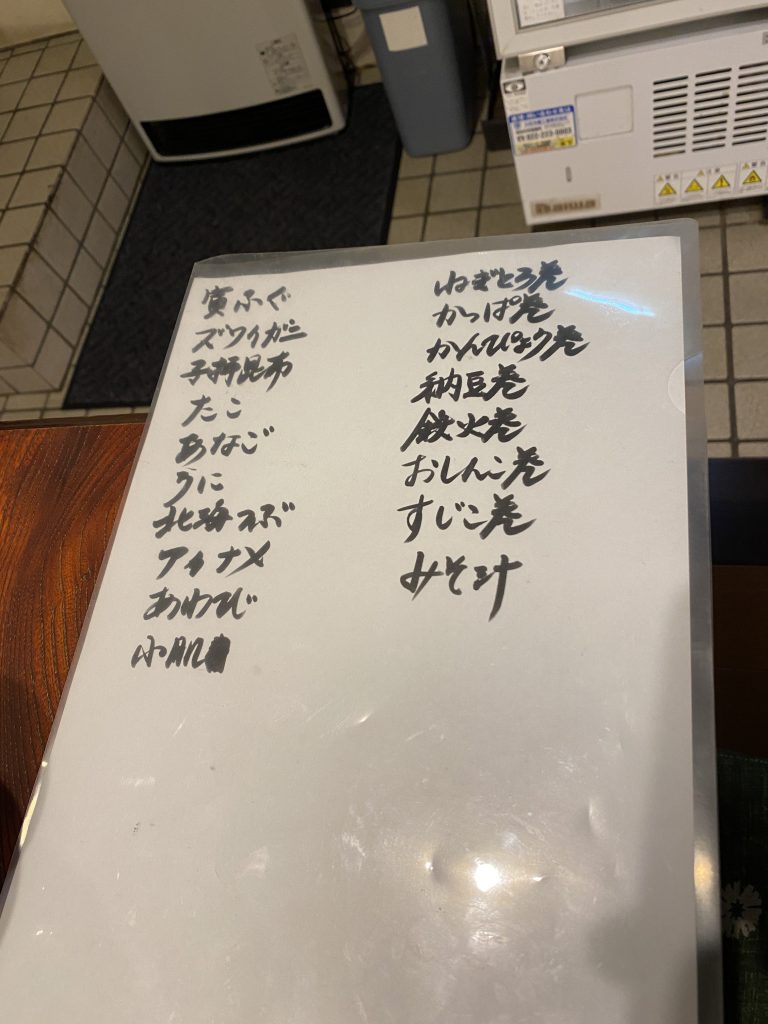 実ふぐ
ズワイガニ
子持昆布
たこ
あなご
うに
北海つぶ
アイナメ
あわび
小肌
ねぎとろ巻
かっぱ巻
かんぴょう巻
納豆巻
鉄火巻
おしんこ巻
すじこ巻
みそ汁